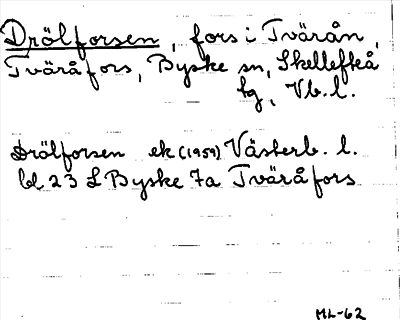 Drölforsen, fors i Tvärån,
Tväråfors, Byske sn, Skellefteå
tg, Vb.l.
Drölforsen ek (1959) Västerb. l.
bl 23 L Byske 7a Tväråfors
ML-62